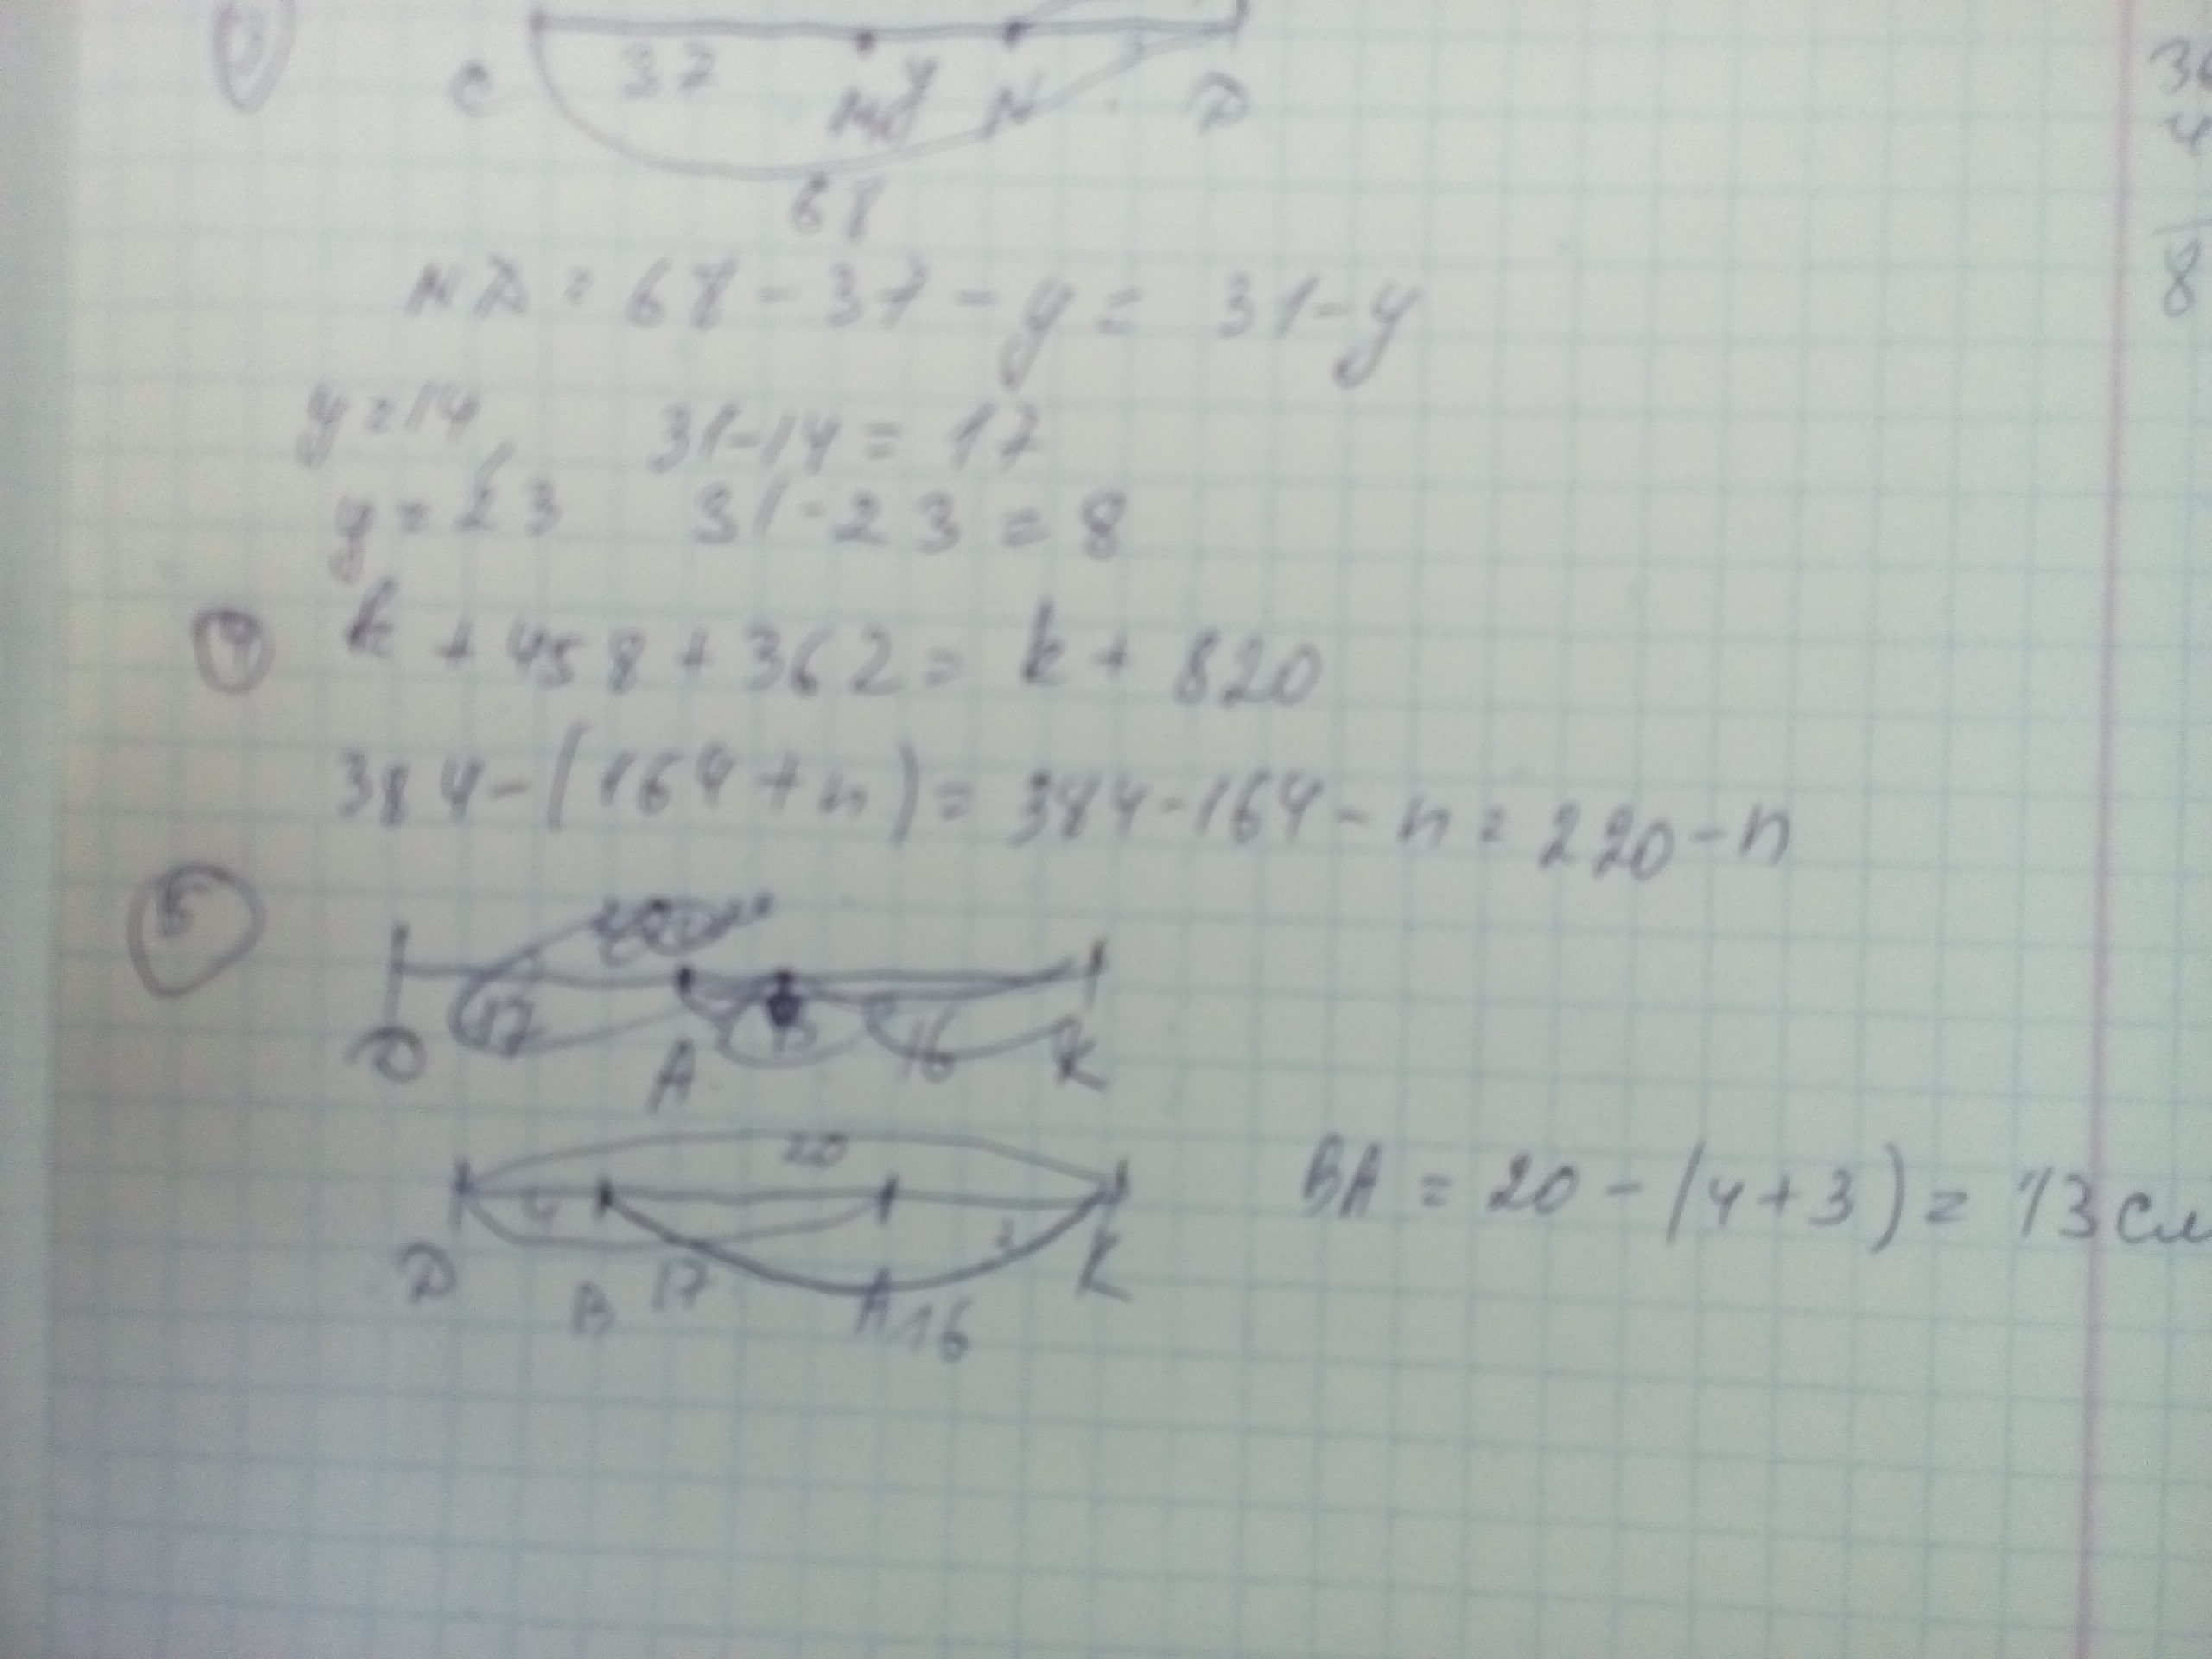 3
37
C M y N D
68
ND = 68 - 37 - y = 31 - y
y = 14 31-14 = 17
y = 23 31-23 = 8
4 k + 458 + 362 = k + 820
384 - (164 + n) = 384 - 164 - n = 220 - n
5
17 16
D A K
20
4 3
D B 17 A 16 K
BA = 20 - (4+3) = 13 см
36
4
8